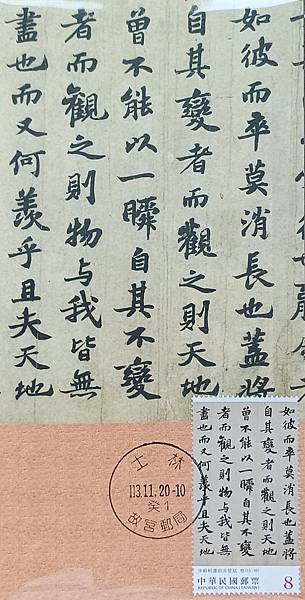 如彼而卒莫消長也蓋將
自其變者而觀之則天地
曾不能以一瞬自其不變
者而觀之則物与我皆無
盡也而又何羨乎且夫天地
士林
113.11.20-10
癸1
故宮郵局
如彼而卒莫消長也蓋將
自其變者而觀之則天地
曾不能以一瞬自其不變
者而觀之則物与我皆無
盡也而又何羨乎且夫天地
中華民國郵票
REPUBLIC OF CHINA (TAIWAN)
8